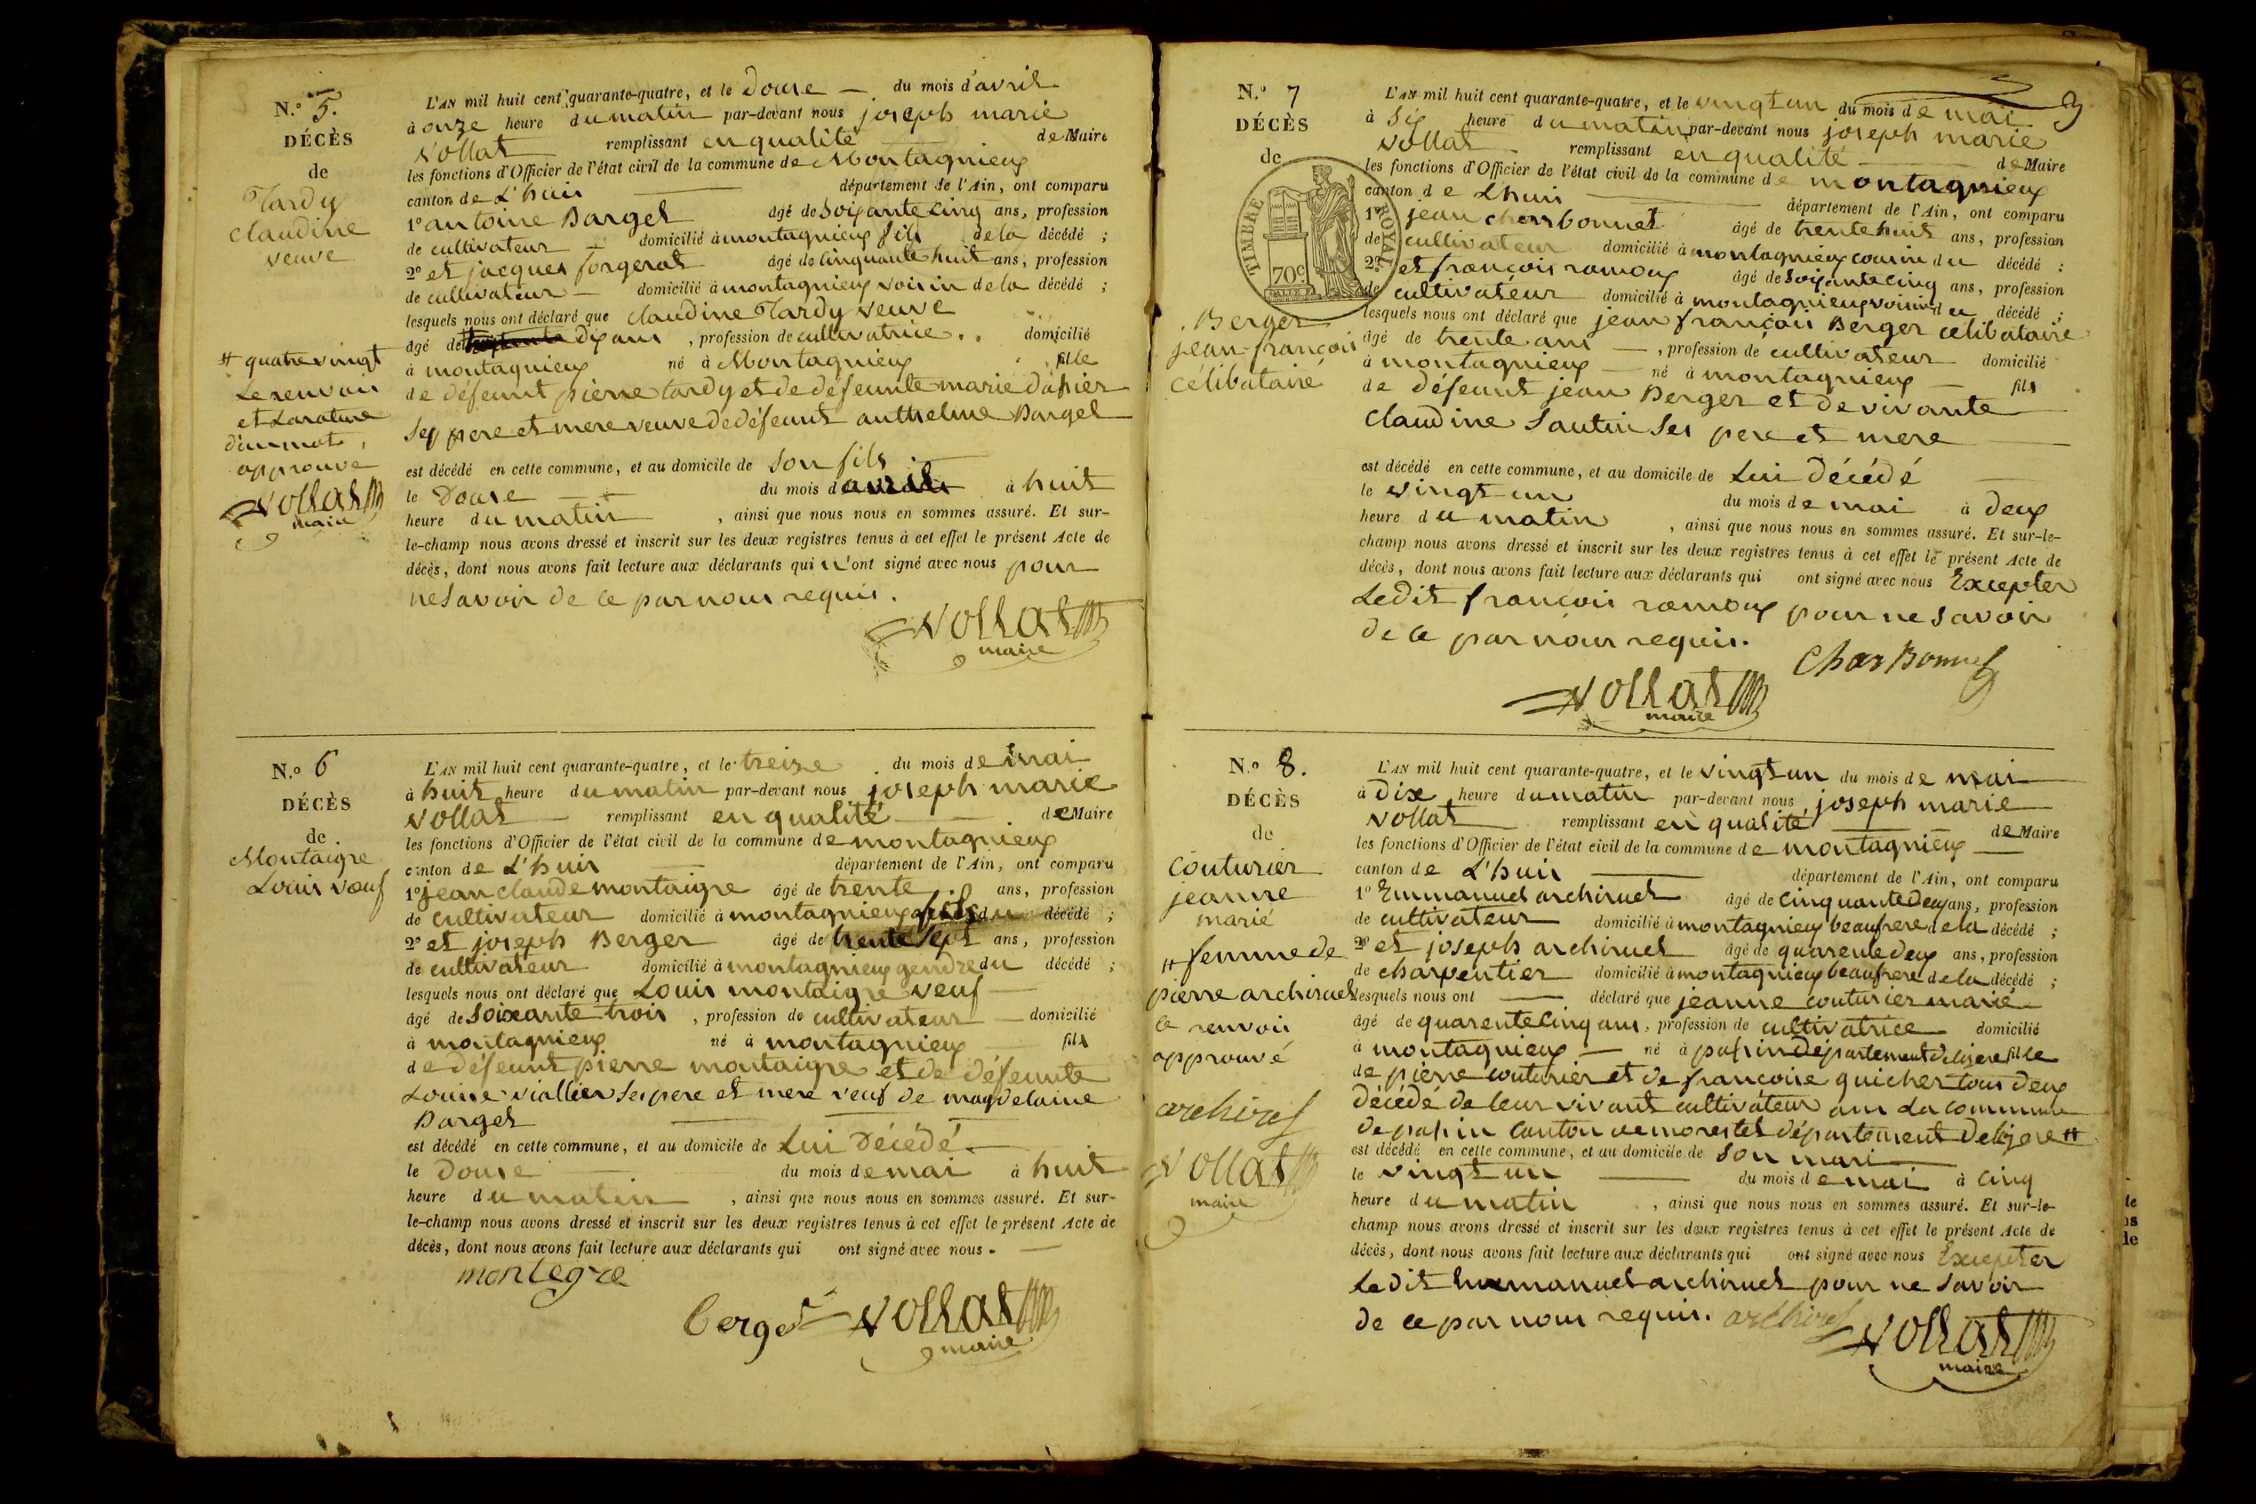 N.º 5.
DÉCÈS
de
Tardy
claudine
veuve
# quatre vingt
Le renvoi
et La rature
d'un mot
approuvé
vollat
maire
L'AN mil huit cent quarante-quatre, et le Douse — du mois d'avril
à onze heure du matin par-devant nous joseph marie
vollat remplissant en qualité de Maire
les fonctions d'Officier de l'état civil de la commune de Montagnieux
canton de L'huis département de l'Ain, ont comparu
1º antoine Barget âgé de soixante cinq ans, profession
de cultivateur domicilié à montagnieux fils de la décédé ;
2º et jacques forgerat âgé de cinquante huit ans, profession
de cultivateur — domicilié à montagnieux voisin de la décédé ;
lesquels nous ont déclaré que claudine Tardy veuve
âgé de Dix ans , profession de cultivatrice . . domicilié
à montagnieux né à Montagnieux fille
de défeunt pierre tardy et de défeunte marie
Ses pere et mere veuve de défeunt anthelme Barget
est décédé en cette commune, et au domicile de Son fils
le Douse du mois d'avril à huit
heure du matin , ainsi que nous nous en sommes assuré. Et sur-
le-champ nous avons dressé et inscrit sur les deux registres tenus à cet effet le présent Acte de
décès, dont nous avons fait lecture aux déclarants qui n'ont signé avec nous pour
ne Savoir de ce par nous requis.
vollat
maire
N.º 6
DÉCÈS
de
Montaigre
Louis veuf
L'AN mil huit cent quarante-quatre, et le treize du mois de mai
à huit heure du matin par-devant nous joseph marie
vollat — remplissant en qualité de Maire
les fonctions d'Officier de l'état civil de la commune de montagnieux
canton de L'huis département de l'Ain, ont comparu
1º jean claude montaigre âgé de trente ans, profession
de cultivateur domicilié à montagnieux fils du décédé ;
2º et joseph Berger âgé de trente sept ans, profession
de cultivateur domicilié à montagnieux gendre du décédé ;
lesquels nous ont déclaré que Louis montaigre veuf
âgé de soixante trois , profession de cultivateur — domicilié
à montagnieux né à montagnieux fils
de défeunt pierre montaigre et de défeunte
Louise viallier Ses pere et mere veuf de magdelaine
Barget
est décédé en cette commune, et au domicile de Lui Décédé
le Douse du mois de mai à huit
heure du matin , ainsi que nous nous en sommes assuré. Et sur-
le-champ nous avons dressé et inscrit sur les deux registres tenus à cet effet le présent Acte de
décès, dont nous avons fait lecture aux déclarants qui ont signé avec nous.
montegre
berger vollat
maire
3
N.º 7
DÉCÈS
de
TIMBRE ROYAL
70c
Berger
jean françois
célibataire
L'AN mil huit cent quarante-quatre, et le vingt un du mois de mai
à Six heure du matin par-devant nous joseph marie
vollat remplissant en qualité de Maire
les fonctions d'Officier de l'état civil de la commune de montagnieux
canton de Lhuis département de l'Ain, ont comparu
1º jean charbonnet âgé de trente huit ans, profession
de cultivateur domicilié à montagnieux cousin du décédé ;
2º et françois ramoux âgé de soixante cinq ans, profession
de cultivateur domicilié à montagnieux voisin du décédé ;
lesquels nous ont déclaré que jean françois Berger celibataire
âgé de trente ans — , profession de cultivateur domicilié
à montagnieux — né à montagnieux — fils
de défeunt jean Berger et de vivante
Claudine Sautin Ses pere et mere
est décédé en cette commune, et au domicile de Lui décédé
le vingt un du mois de mai à deux
heure du matin , ainsi que nous nous en sommes assuré. Et sur-le-
champ nous avons dressé et inscrit sur les deux registres tenus à cet effet le présent Acte de
décès, dont nous avons fait lecture aux déclarants qui ont signé avec nous Excepter
Ledit françois ramoux pour ne Savoir
de ce par nous requis.
CharBonnet
vollat
maire
N.º 8.
DÉCÈS
de
Couturier
jeanne
marié
# femme de
pierre archiruel
ce renvoi
approuvé
vollat
maire
L'AN mil huit cent quarante-quatre, et le vingt un du mois de mai
à Dix heure du matin par-devant nous joseph marie
vollat remplissant en qualité de Maire
les fonctions d'Officier de l'état civil de la commune de montagnieux
canton de L'huis département de l'Ain, ont comparu
1º Emmanuel archiruel âgé de cinquante Deux ans, profession
de cultivateur domicilié à montagnieux beaufrere de la décédé ;
2º et joseph archiruel âgé de quarente deux ans, profession
de charpentier domicilié à montagnieux beaufrere de la décédé ;
lesquels nous ont — déclaré que jeanne couturier marié
âgé de quarente cinq ans , profession de cultivatrice domicilié
à montagnieux — né à département de fille
de pierre couturier et de francoise guicher tous deux
décédé de leur vivant cultivateur La commune
de canton de morestel département #
est décédé en cette commune, et au domicile de Son mari
le vingt un du mois de mai à cinq
heure du matin , ainsi que nous nous en sommes assuré. Et sur-le-
champ nous avons dressé et inscrit sur les deux registres tenus à cet effet le présent Acte de
décès, dont nous avons fait lecture aux déclarants qui ont signé avec nous Excepter
Ledit archiruel pour ne Savoir
de ce par nous requis. vollat
maire